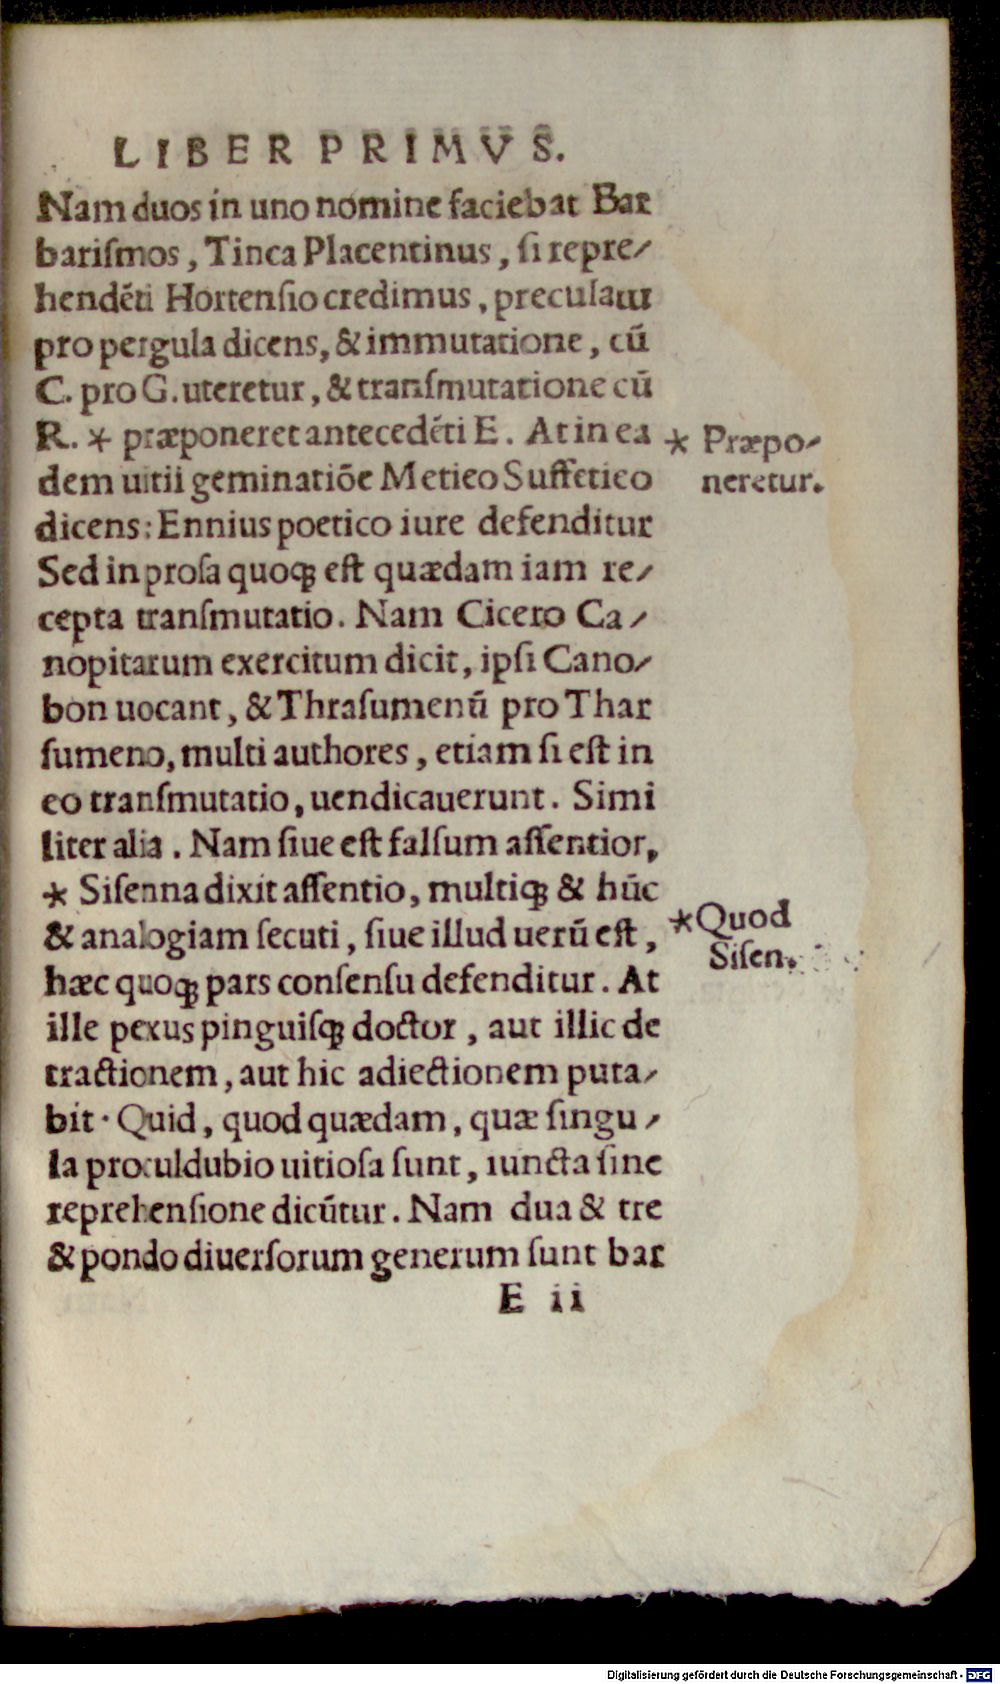 LIBER PRIMVS.
Nam duos in uno nomine faciebat Bar
bariſmos, Tinca Placentinus, ſi repre/
hendēti Hortenſio credimus, precula
pro pergula dicens, & immutatione, cū
C. pro G. uteretur, & tranſmutatione cū
R. * præponeret antecedēti E. At in ea
* Præpo/
neretur.
dem uitii geminatiōe Metieo Suffetieo
dicens: Ennius poetico iure defenditur
Sed in proſa quoqꝫ eſt quædam iam re/
cepta tranſmutatio. Nam Cicero Ca/
nopitarum exercitum dicit, ipſi Cano/
bon uocant, & Thraſumenū pro Thar
ſumeno, multi authores, etiam ſi eſt in
eo tranſmutatio, uendicauerunt. Simi
liter alia. Nam ſiue eſt falſum aſſentior,
* Siſenna dixit aſſentio, multiqꝫ & hūc
*Quod
Siſen.
& analogiam ſecuti, ſiue illud uerū eſt,
hæc quoqꝫ pars conſenſu defenditur. At
ille pexus pinguiſqꝫ doctor, aut illic de
tractionem, aut hic adiectionem puta/
bit. Quid, quod quædam, quæ ſingu/
la proculdubio uitioſa ſunt, iuncta ſine
reprehenſione dicūtur. Nam dua & tre
& pondo diuerſorum generum ſunt bar
E ii
Digitalisierung gefördert durch die Deutsche Forschungsgemeinschaft - DFG